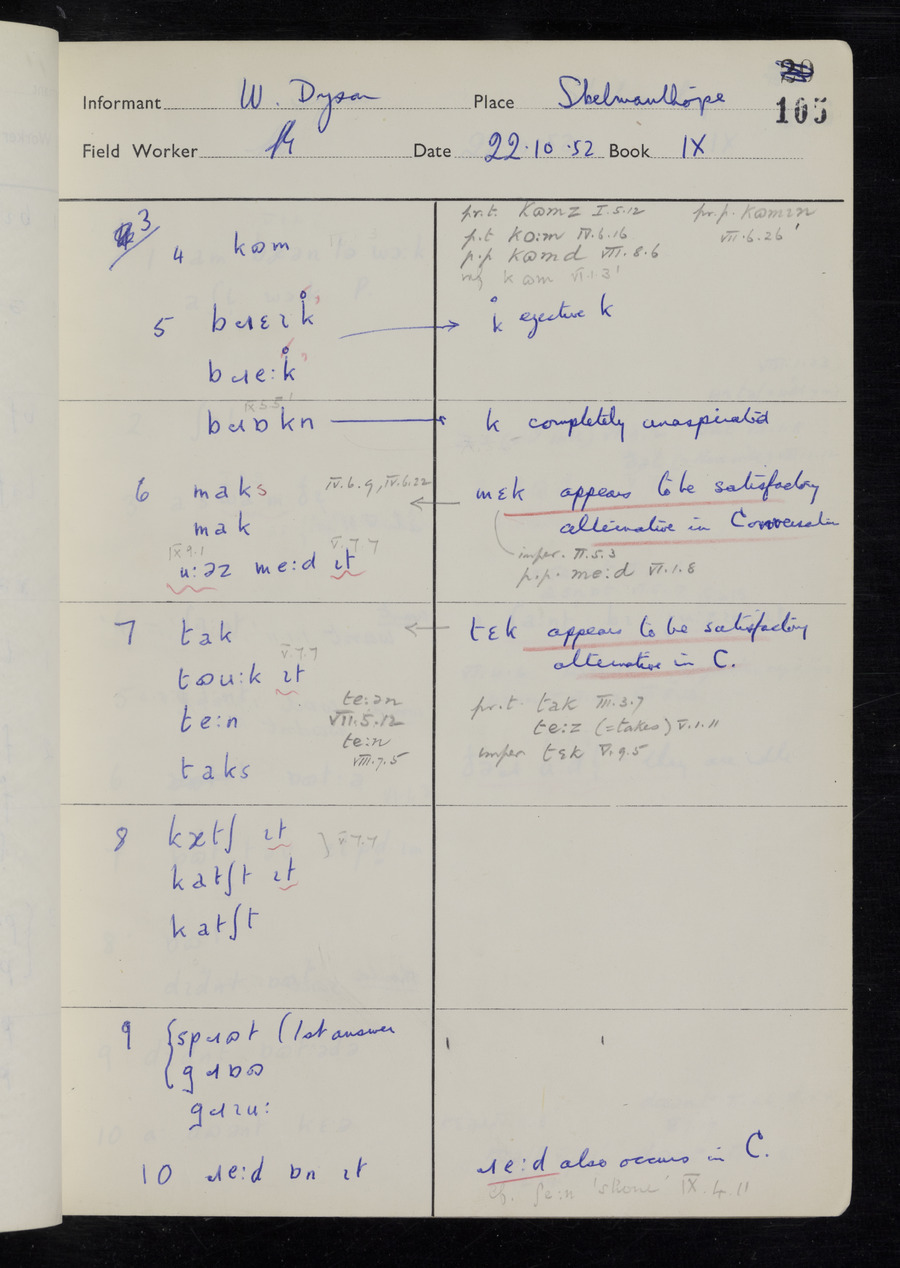 Informant W. Dyson Place Skelmanthorpe
20 105
Field Worker Date 22.10.52 Book IX
3
4 kɷm
pr.t. kɷmz I.5.12
p.t. ko:m IV.6.16
p.p. kɷmd VIII.8.6
kɷm VI.1.3
pr.p. kɷmɪn
VII.6.26
5 bɹɛɪk̊
k̊ ejective k
bɹe:k̊
IX.3.5
bɹɒkn
k completely unaspirated
6 maks
IV.6.9, IV.6.22
mɛk appears to be satisfactory
alternative in Conversation
mak
imper. II.5.3
p.p. me:d VI.1.8
IX.9.1
V.7.7
u:əz me:d ɪt
7 tak
tɛk appears to be satisfactory
alternative in C.
V.7.7
tɷu:k ɪt
te:n
te:ən
VII.5.12
te:n
VIII.7.5
taks
pr.t. tak III.3.7
te:z (=takes) V.1.11
imper tɛk V.9.5
8 kætʃ ɪt
V.7.7
katʃt ɪt
katʃt
9 spɹɷt (1st answer
gɹɒɷ
gɹɪu:
10 ɹe:d ɒn ɪt
ɹe:d also occurs in C.
cf. ʃe:n 'shone' IX.4.11